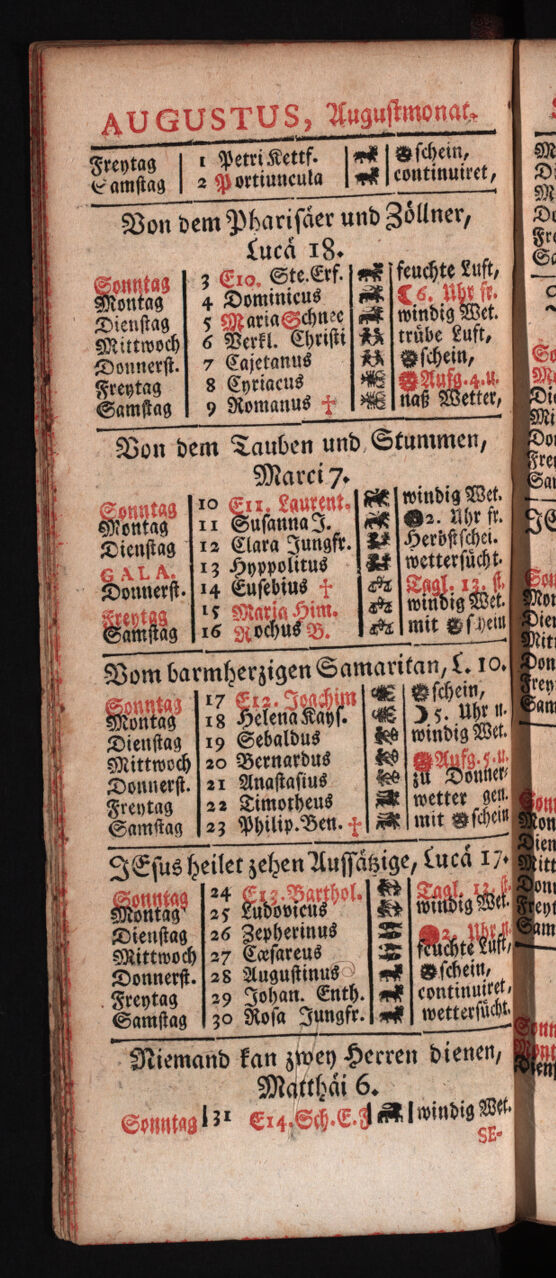 AUGUSTUS, Augustmonat.
Freytag 1 Petri Kettf. schein,
Samstag 2 Portiuncula continuiret,
Von dem Pharisäer und Zöllner,
Lucä 18.
Sonntag 3 E10. Ste. Erf. feuchte Luft,
Montag 4 Dominicus 6. Uhr fr.
Dienstag 5 Maria Schnee windig Wet.
Mittwoch 6 Verkl. Christi trübe Luft,
Donnerst. 7 Cajetanus schein,
Freytag 8 Cyriacus Aufg. 4. u.
Samstag 9 Romanus † naß Wetter,
Von dem Tauben und Stummen,
Marci 7.
Sonntag 10 E11. Laurent. windig Wet.
Montag 11 Susanna J. 2. Uhr fr.
Dienstag 12 Clara Jungfr. Herbstschei.
GALA. 13 Hyppolitus wettersücht.
Donnerst. 14 Eusebius † Tagl. 13. st.
Freytag 15 Maria Him. windig Wet.
Samstag 16 Rochus B. mit schein
Vom barmherzigen Samaritan, L. 10.
Sonntag 17 E12. Joachim schein,
Montag 18 Helena Kays. 5. Uhr n.
Dienstag 19 Sebaldus windig Wet.
Mittwoch 20 Bernardus Aufg. 5. u.
Donnerst. 21 Anastasius zu Donner-
Freytag 22 Timotheus wetter gen.
Samstag 23 Philip. Ben. † mit schein
JEsus heilet zehen Aussätzige, Lucä 17.
Sonntag 24 E13. Barthol. Tagl. 13. st.
Montag 25 Ludovicus windig Wet.
Dienstag 26 Zepherinus 2. Uhr n.
Mittwoch 27 Cæsareus feuchte Luft,
Donnerst. 28 Augustinus schein,
Freytag 29 Johan. Enth. continuiret,
Samstag 30 Rosa Jungfr. wettersücht.
Niemand kan zwey Herren dienen,
Matthäi 6.
Sonntag 31 E14. Sch. E. F windig Wet.
SE-